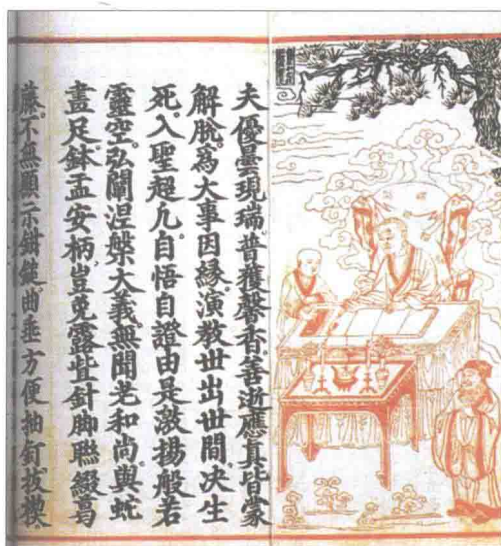 夫優曇現瑞普獲馨香善逝應真皆蒙
解脫為大事因緣演教世出世間決生
死入聖超凡自悟自證由是激揚般若
靈空弘闡涅槃大義無聞老和尚與蛇
畫足鉢盂安柄豈免露些針脚聯綴葛
藤不無顯示鉗鎚曲垂方便抽釘拔楔